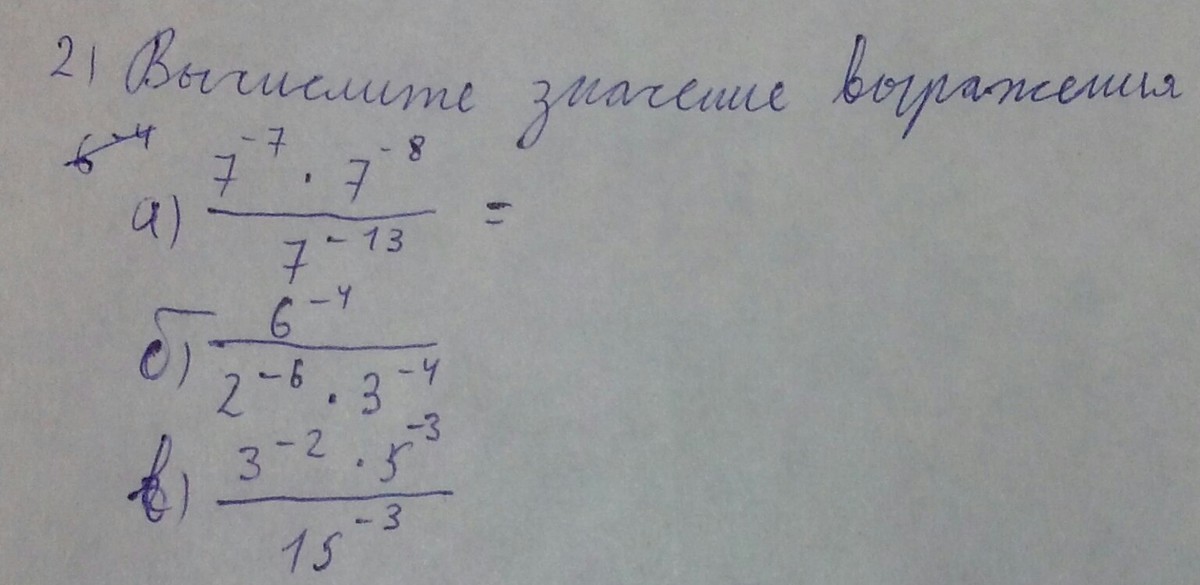 2) Вычислите значение выражения
6⁻⁴
а) 7⁻⁷ · 7⁻⁸ / 7⁻¹³ =
б) 6⁻⁴ / 2⁻⁶ · 3⁻⁴
в) 3⁻² · 5⁻³ / 15⁻³